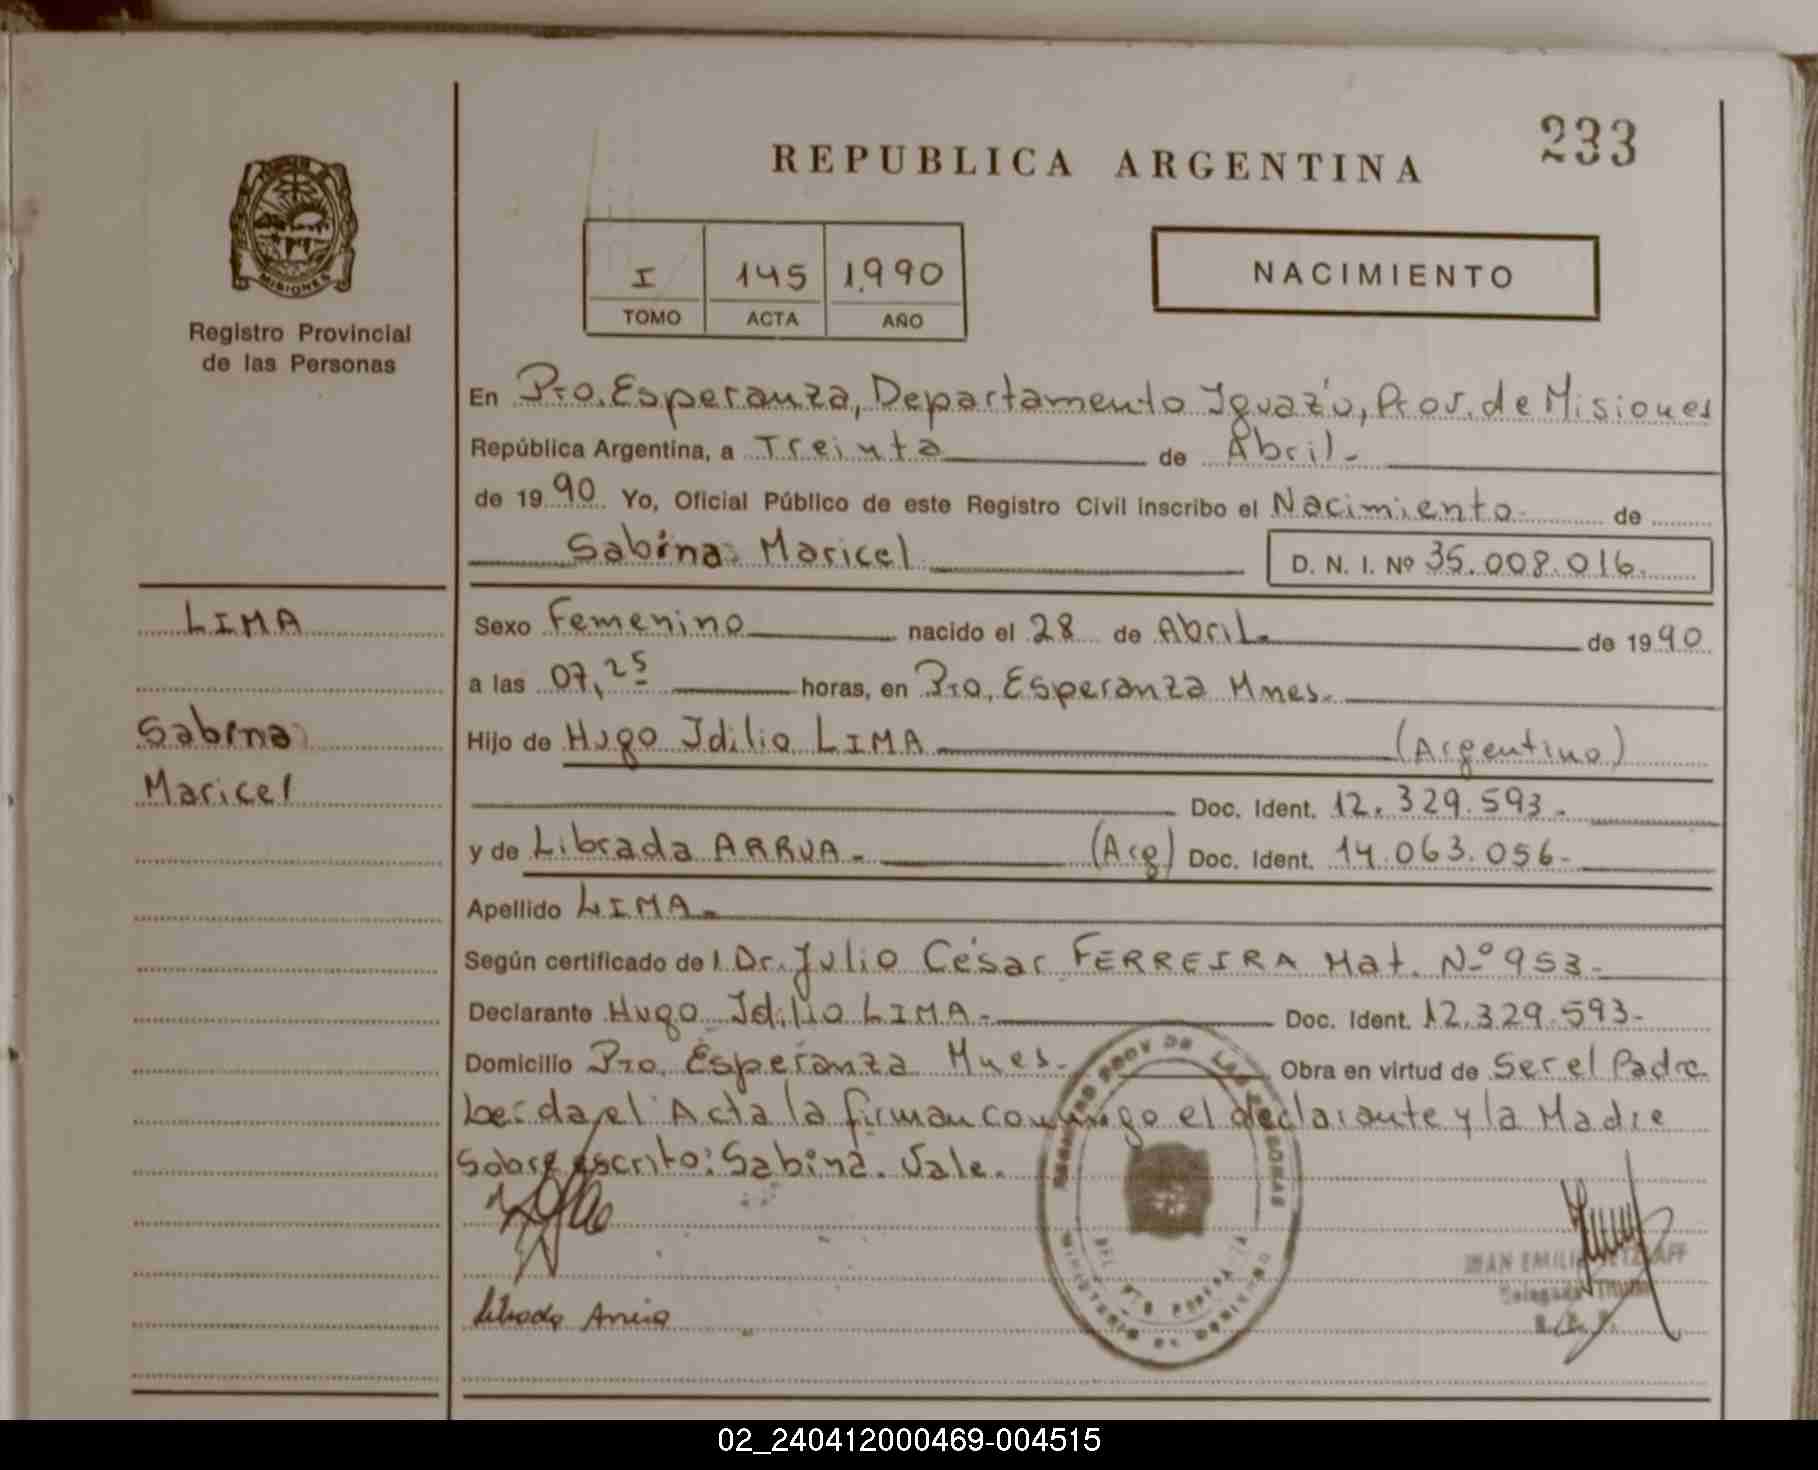 233
REPUBLICA ARGENTINA
MISIONES
Registro Provincial
de las Personas
I 145 1.990
TOMO ACTA AÑO
NACIMIENTO
En Pto. Esperanza, Departamento Iguazú, Prov. de Misiones
República Argentina, a Treinta de Abril.-
de 1990 Yo, Oficial Público de este Registro Civil inscribo el Nacimiento de
Sabina Maricel D. N. I. Nº 35.008.016.
LIMA
Sabina
Maricel
Sexo Femenino nacido el 28 de Abril.- de 1990
a las 07,25 horas, en Pto. Esperanza Mnes.-
Hijo de Hugo Idilio LIMA (Argentino)
Doc. Ident. 12.329.593.-
y de Librada ARRUA.- (Arg) Doc. Ident. 14.063.056-
Apellido LIMA.-
Según certificado del Dr. Julio César FERREIRA Mat. Nº 953-
Declarante Hugo Idilio LIMA.- Doc. Ident. 12.329.593-
Domicilio Pto. Esperanza Mnes.- Obra en virtud de Ser el Padre
Leída el Acta la firman conmigo el declarante y la Madre
Sobre escrito: Sabina. Vale.
REGISTRO PROV DE LAS PERSONAS
MINISTERIO DE GOBIERNO
DEL PTO ESPERANZA
Delegado Titular
Librada Arrua
02_240412000469-004515